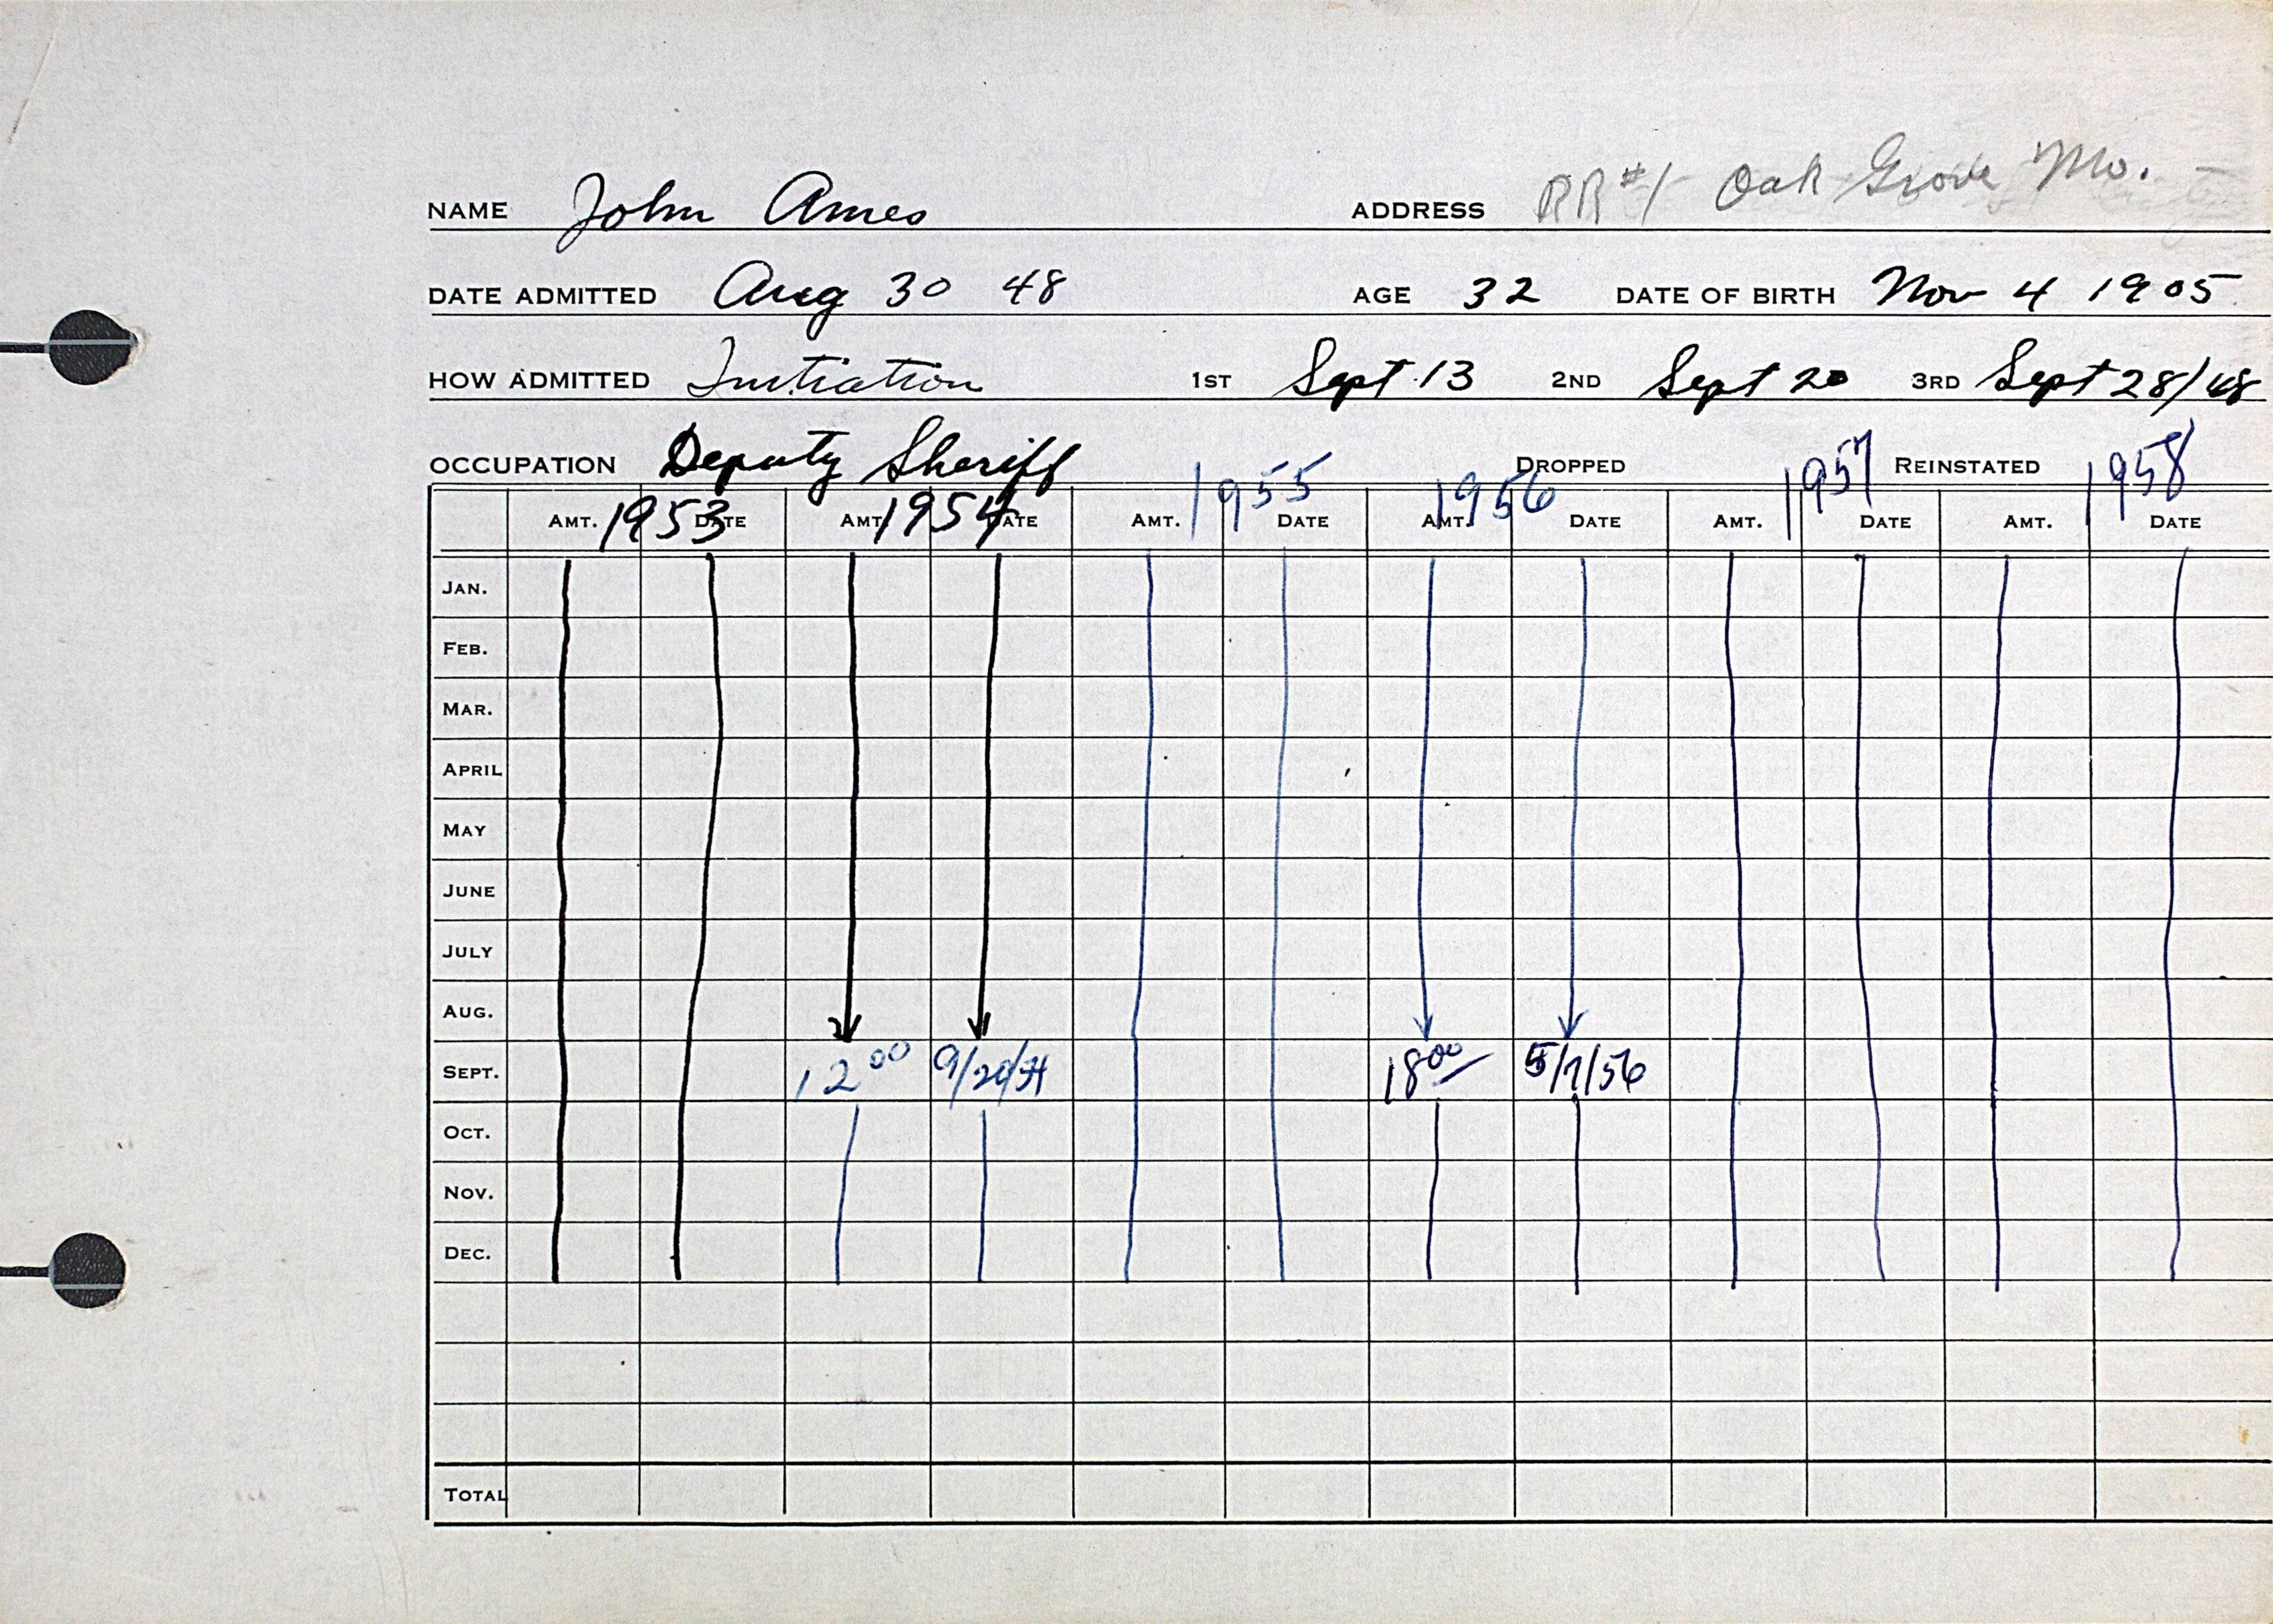 NAME John Ames ADDRESS RR#1 Oak Grove Mo.
DATE ADMITTED Aug 30 48 AGE 32 DATE OF BIRTH Nov 4 1905
HOW ADMITTED Initiation 1ST Sept 13 2ND Sept 20 3RD Sept 28/48
OCCUPATION Deputy Sheriff DROPPED REINSTATED
1953 1954 1955 1956 1957 1958
AMT. DATE AMT. DATE AMT. DATE AMT. DATE AMT. DATE AMT. DATE
JAN.
FEB.
MAR.
APRIL
MAY
JUNE
JULY
AUG.
SEPT. 12 00 9/20/54 18 00 5/7/56
OCT.
NOV.
DEC.
TOTAL